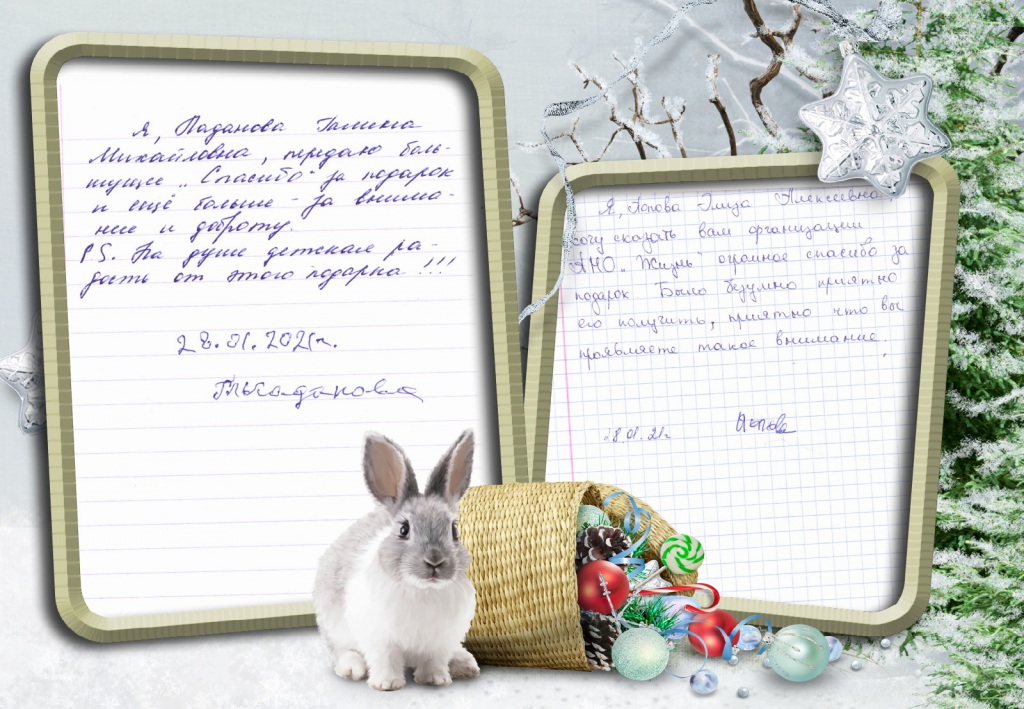 Я, Паданова Галина
Михайловна, передаю боль-
шущее „Спасибо" за подарок
и ещё больше - за внима-
ние и доброту.
P.S. На душе детская ра-
дость от этого подарка!!!
28.01.2021г.
ГМПаданова
Я, Попова Элиза Алексеевна,
хочу сказать вам организации
АНО „Жизнь" огромное спасибо за
подарок. Было безумно приятно
его получить, приятно что вы
проявляете такое внимание.
28.01.21г.